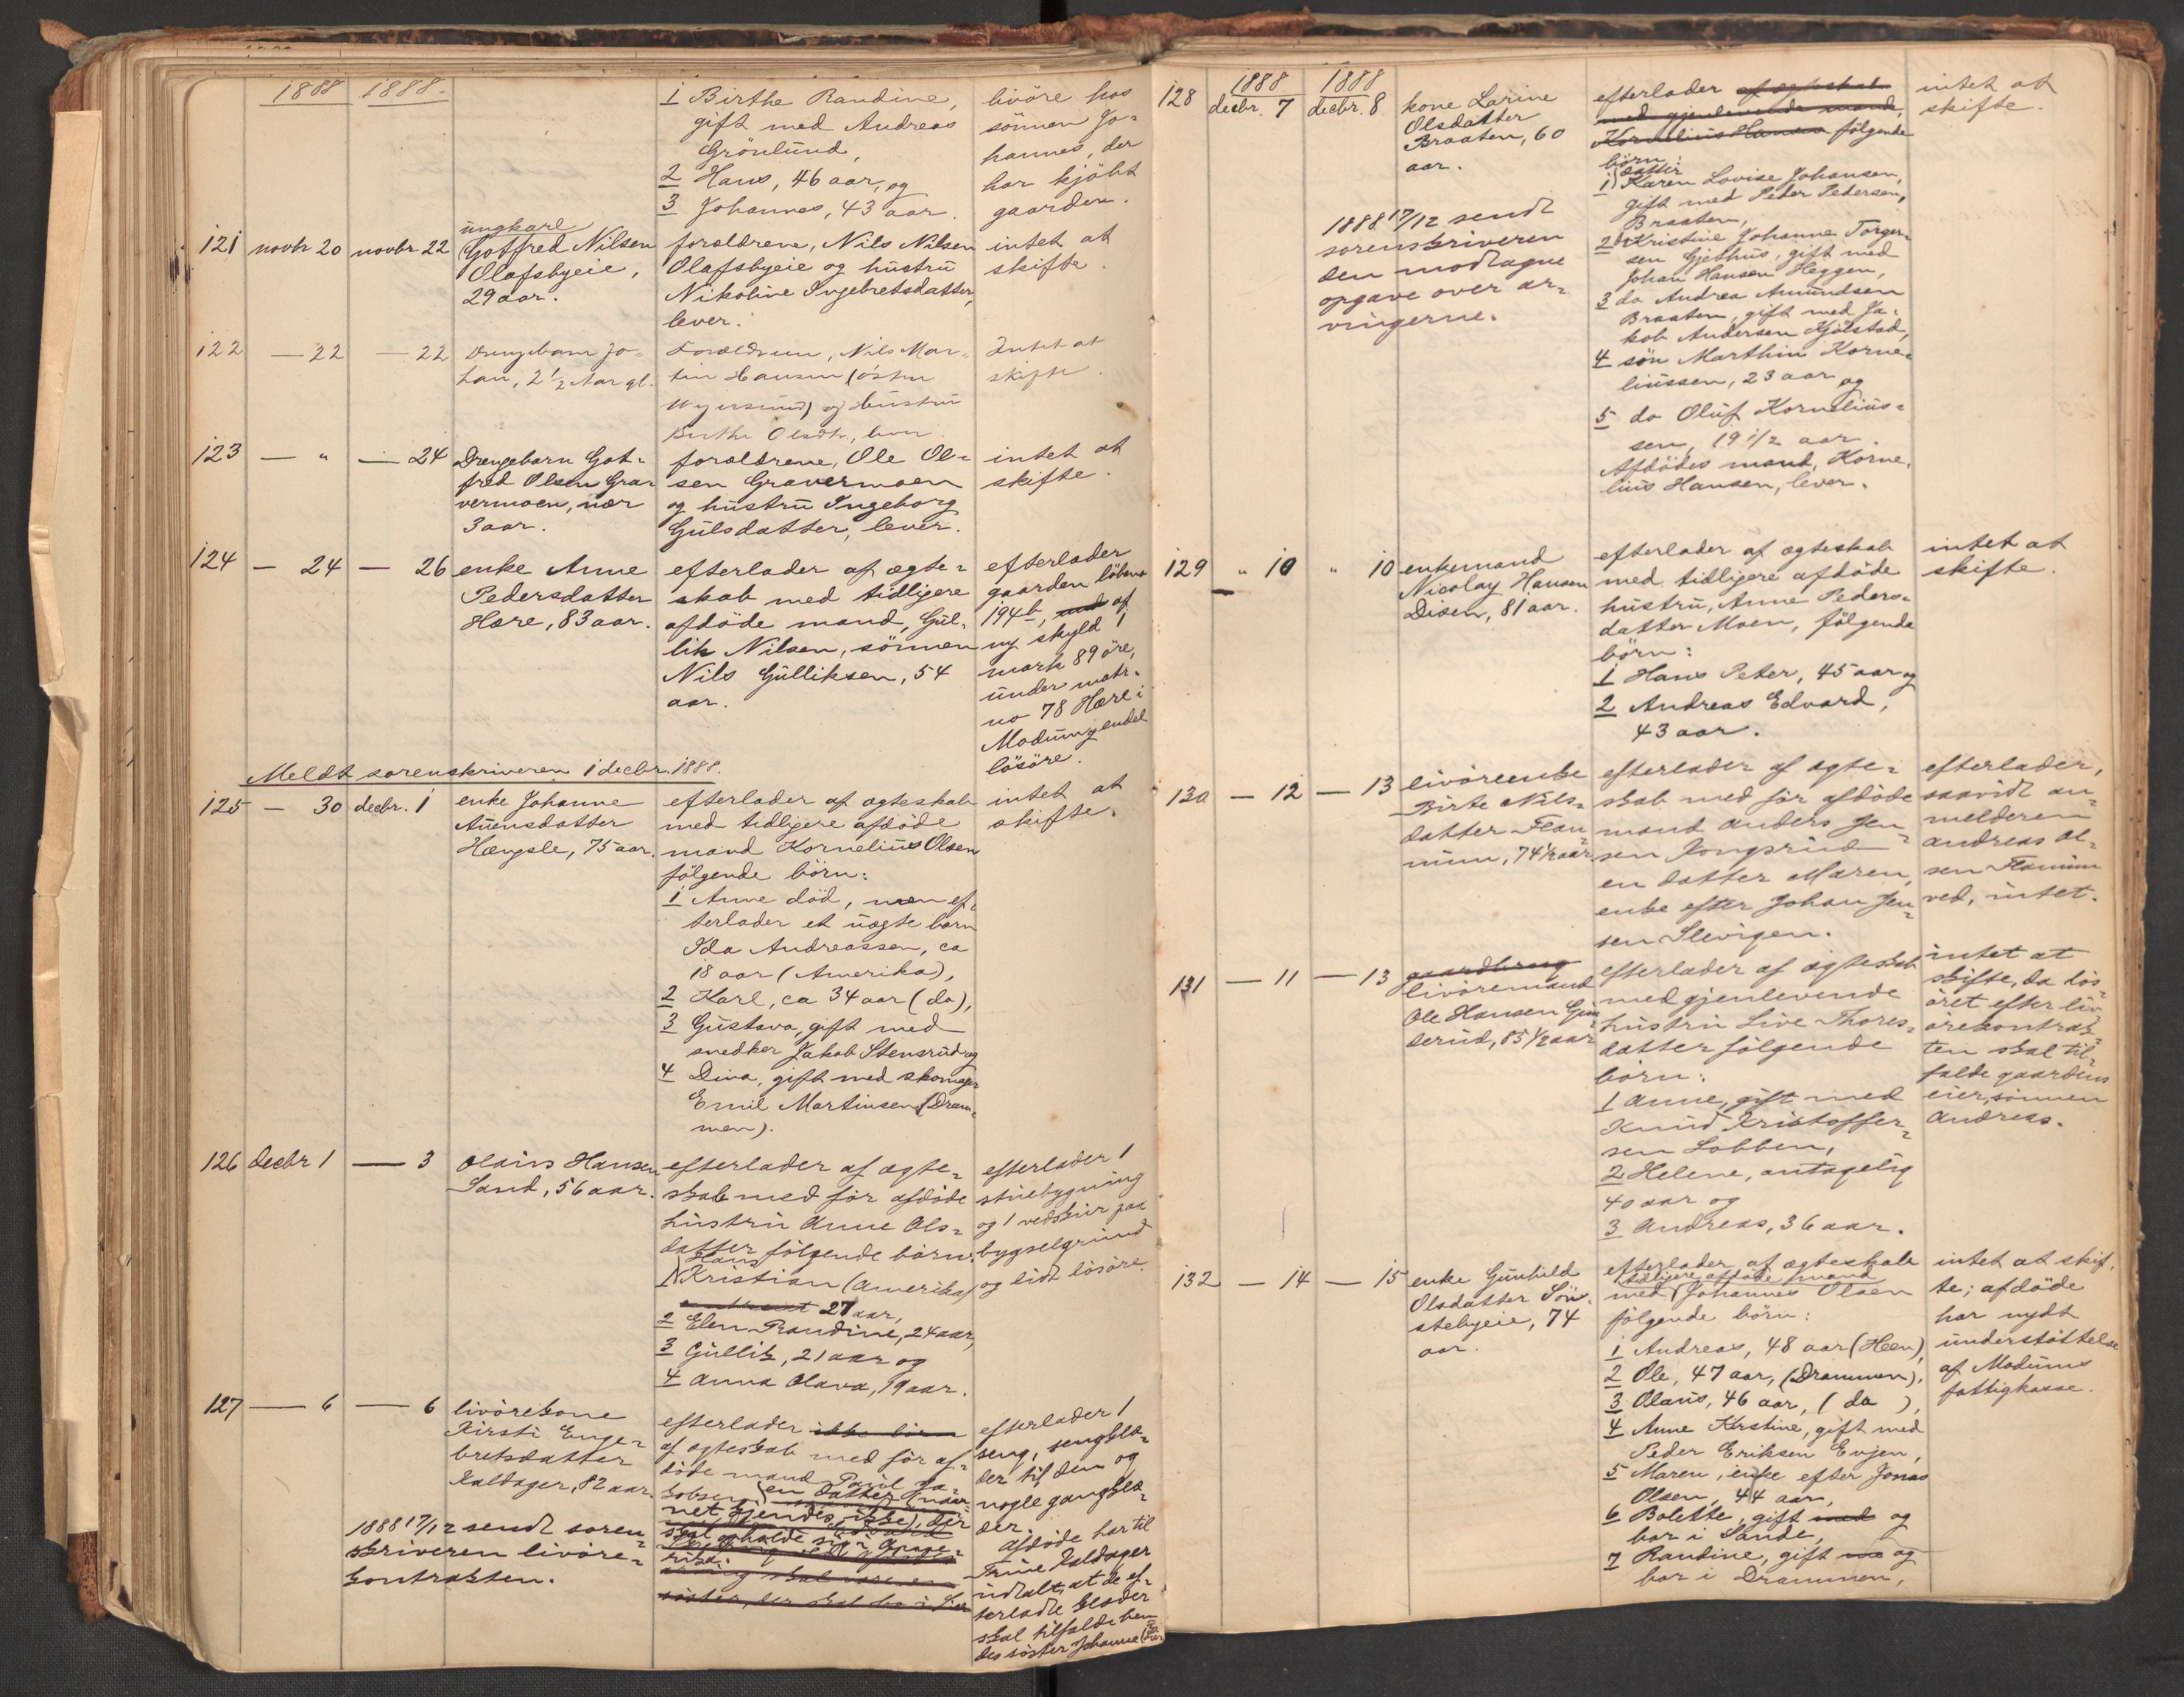 1888 1888.
1 Birthe Randine,
gift med Andreas
Grönlund,
2 Hans, 46 aar, og
3 Johannes, 43 aar.
livöre hos
sönnen Jo-
hannes, der
har kjöbt
gaarden.
121 novbr 20 novbr 22
ungkarl
Gotfred Nilsen
Olafsbyeie,
29 aar.
forældrene, Nils Nilsen
Olafsbyeie og hustru
Nikoline Ingebretsdatter,
lever.
intet at
skifte.
122 — 22 — 22
Drengebarn Jo-
han, 2 1/2 Aar gl.
Forældrene, Nils Mar-
tin Hansen (östre
og Hustru
Birthe Olsdtr., lever
Intet at
skifte.
123 — " — 24
Drengebarn Got-
fred Olsen Gra-
vermoen, nær
3 aar.
forældrene, Ole Ol-
sen Gravermoen
og hustru Ingeborg
Gulsdatter, lever.
intet at
skifte.
124 — 24 — 26
enke Anne
Pedersdatter
Hære, 83 aar.
efterlader af ægte-
skab med tidligere
afdöde mand, Gul-
lik Nilsen, sönnen
Nils Gulliksen, 54
aar.
efterlader
gaarden löbeno
194b, med af
ny skyld 1
mark 89 öre,
under matr.
no 78 Hære i
Modum og endel
lösöre.
Meldt sorenskriveren 1 decbr. 1888.
125 — 30 decbr. 1
enke Johanne
Auensdatter
Hængsle, 75 aar.
efterlader af ægteskab
med tidligere afdöde
mand Kornelius Olsen
fölgende börn:
1 Anne död, men ef-
terlader et uægte barn
Ida Andreassen, ca
18 aar (Amerika),
2 Karl, ca 34 aar (do),
3 Gustava, gift med
snedker Jakob Stensrud og
4 Dina, gift med skomager
Emil Martinsen (Dram-
men).
intet at
skifte.
126 decbr 1 — 3
Olaus Hansen
Sand, 56 aar.
efterlader af ægte-
skab med för afdöde
hustru Anne Ols-
datter fölgende börn:
1 Hans
Kristian (Amerika)
27 aar,
2 Elen Randine, 24 aar,
3 Gullik, 21 aar og
4 Anna Olava, 19 aar.
efterlader 1
stuebygning
og 1 vedskur paa
bygselgrund
og lidt lösöre.
127 — 6 — 6
livörekone
Kirsti Enge-
bretsdatter
Kaldager, 82 aar.
1888 17/12 sendt soren-
skriveren livöre-
kontrakten.
efterlader ikke börn
af ægteskab med för af-
döde mand Paul Ja-
kobsen en datter (nav-
net kjendes ikke), der
skal opholde sig i Ame-
rika.
efterlader 1
seng, sengklæ-
der til den og
nogle gangklæ-
der.
Afdöde har til
Trine Kaldager
udtalt, at de ef-
terladte klæder
skal tilfalde hen-
des söster Johanne
128
1888 1888
decbr. 7 decbr. 8
kone Larine
Olsdatter
Braaten, 60
aar.
1888 17/12 sendt
sorenskriveren
den modtagne
opgave over ar-
vingerne.
efterlader af ægteskab
med gjenlevende mand,
Kornelius Hansen fölgende
börn:
1 datter
Karen Lovise Johansen,
gift med Peder Pedersen,
Braaten,
2 do Kristine Johanne Torger-
sen Gjethus, gift med
Johan Hansen Heggen,
3 do Andrea Amundsen
Braaten, gift med Ja-
kob Andersen Kjölstad,
4 sön Marthin Korne-
liussen, 23 aar og
5 do Oluf Kornelius-
sen, 19 1/2 aar.
Afdödes mand, Korne-
lius Hansen, lever.
intet at
skifte.
129 " 10 " 10
enkemand
Nicolay Hansen
Disen, 81 aar.
efterlader af ægteskab
med tidligere afdöde
hustru, Anne Peders-
datter Moen, fölgende
börn:
1 Hans Peter, 45 aar og
2 Andreas Edvard,
43 aar.
intet at
skifte.
130 — 12 — 13
livöreenke
Birte Nils-
datter Flan-
num, 74 1/2 aar
efterlader af ægte-
skab med för afdöde
mand Anders Jen-
sen Kongsrud
en datter Maren,
enke efter Johan Jen-
sen Slevigen.
efterlader,
saavidt an-
melderen
Andreas Ol-
sen Flannum
ved, intet.
131 — 11 — 13
gaardbrug
livöremand
Ole Hansen Gun-
derud, 85 1/2 aar
efterlader af ægteskab
med gjenlevende
hustru Live Thores-
datter fölgende
börn:
1 Anne, gift med
Knud Kristoffer-
sen Lobben,
2 Helene, antagelig
40 aar og
3 Andreas, 36 aar.
intet at
skifte, da lös-
öret efter liv-
örekontrak-
ten skal til-
falde gaardens
eier, sönnen
Andreas.
132 — 14 — 15
enke Gunhild
Olsdatter Sön-
stebyeie, 74
aar.
efterlader af ægteskab
tidligere afdöde mand
med Johannes Olsen
fölgende börn:
1 Andreas, 48 aar (Heen),
2 Ole, 47 aar, (Drammen),
3 Olaus, 46 aar, (do),
4 Anne Kirstine, gift med
Peder Eriksen Evjen,
5 Maren, enke efter Jonas
Olsen, 44 aar,
6 Bolette, gift med og
bor i Sande,
7 Randine, gift og
bor i Drammen,
intet at skif-
te; afdöde
har nydt
understöttelse
af Modums
fattigkasse.